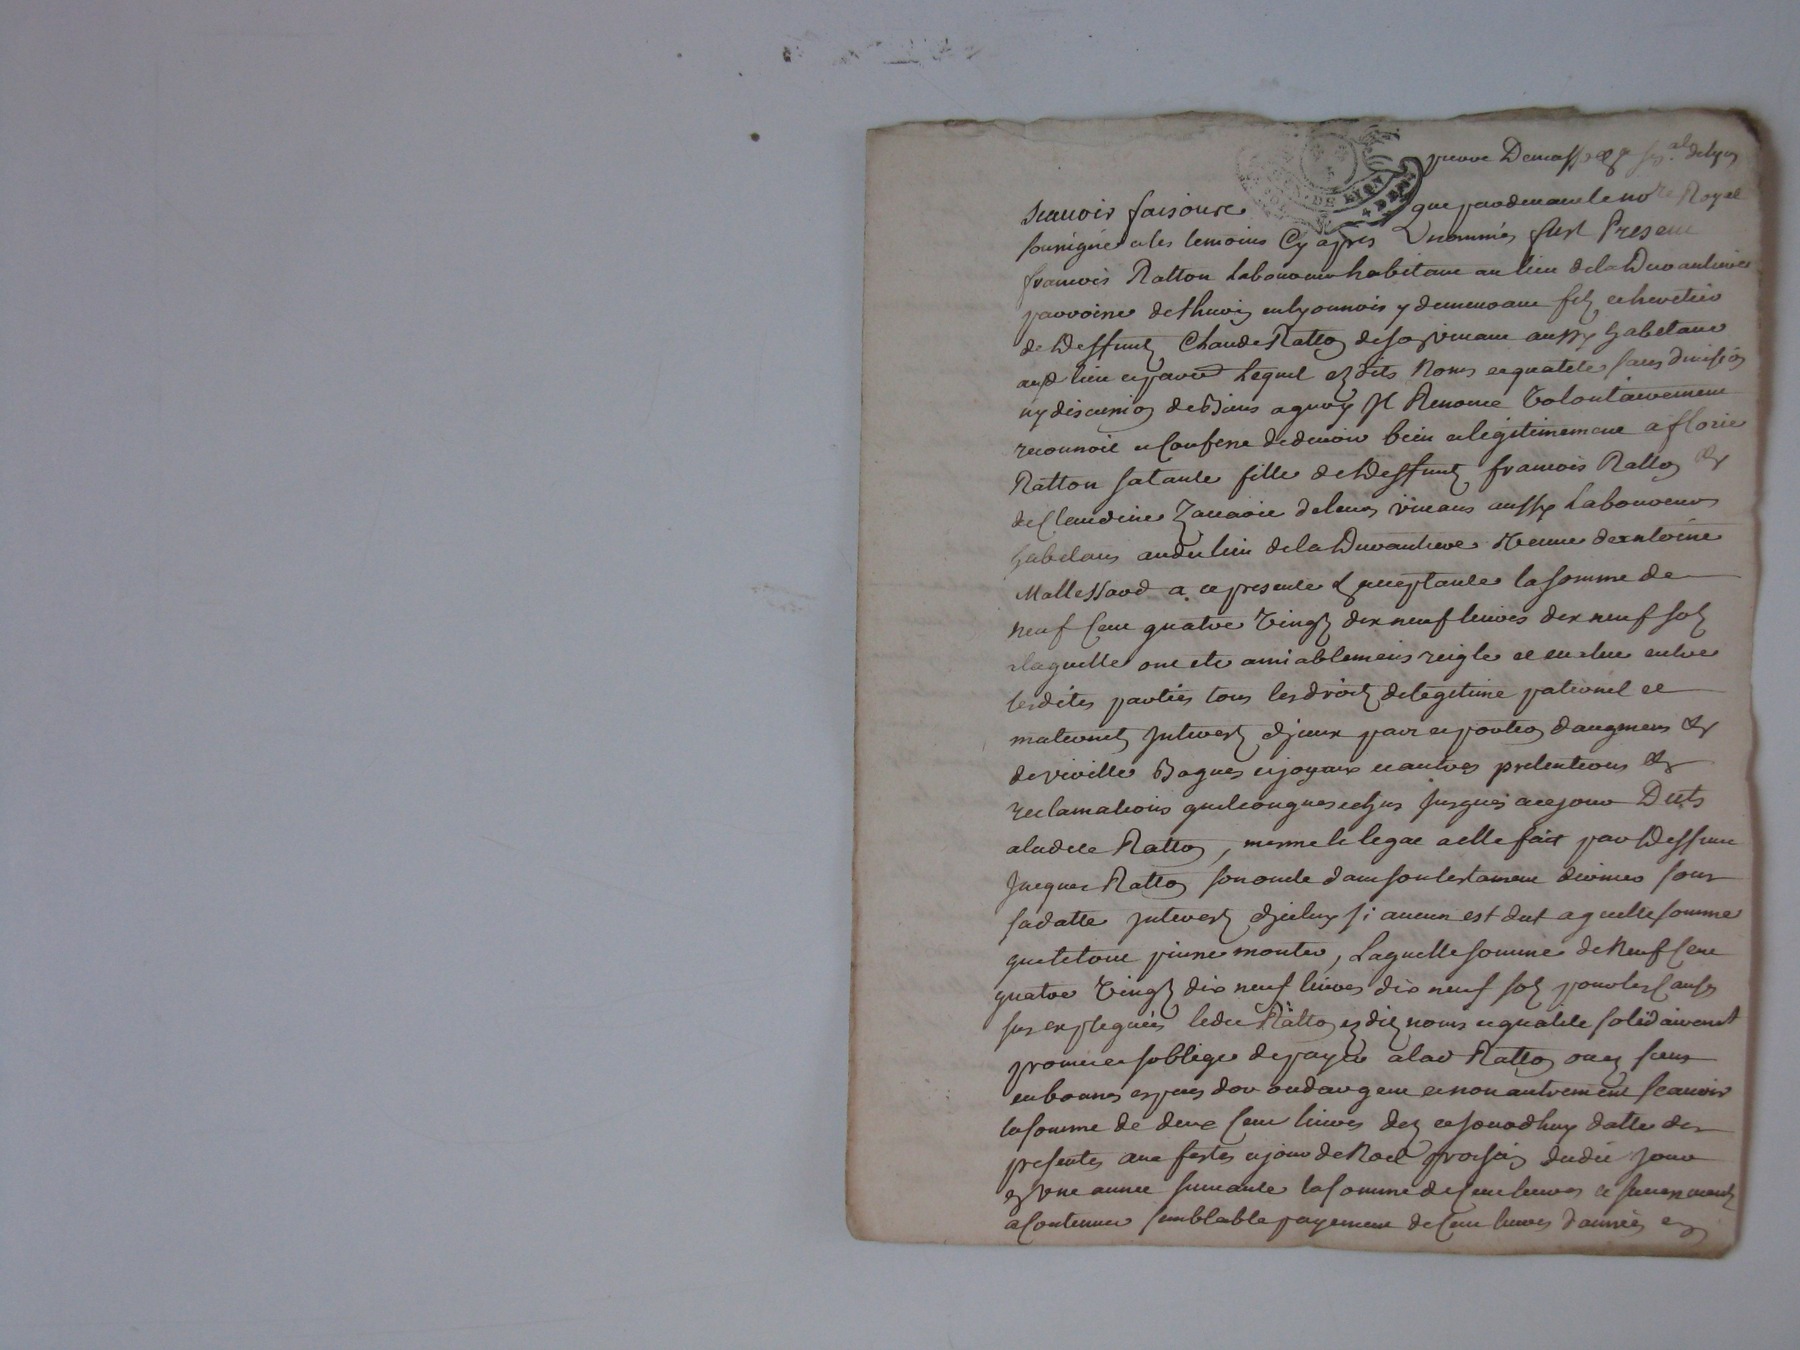 DE LYON
4 DEN
Scauoir faisons que pardeuant le no.re Royal
soussigné et les temoins Cy apres Denommés fust Present
francois Ratton Laboureur habitant au lieu dela Durantiere
parroisse de thurin en lyonnois y demeurant fils et heretier
de Deffunt Claude Ratton de son viuant aussy habitant
aud lieu et par. Lequel ez dits Noms et qualité sans diuision
ny discussion de Biens a quoy Jl Renonce Volontairement
reconnoit et Confesse de deuoir bien et legitimement a florie
Ratton sa tante fille de Deffunts francois Ratton &
de Claudine Zacarie de leurs viuans aussy Laboureurs
habitans au du lieu de la Durantiere Veuue dextoine
Mallessard a ce presente & acceptante la somme de
neuf Cent quatre Vingt dix neuf liures dix neuf sols
a laquelle ont ete amiablement reigle et entre
lesdites parties tous les droits de legitime paternel et
maternels Jnterest d'jceux part et portion d'augment &
de viville Bagues et joyaux et autres pretentions &
reclamations quelconques echus jusques a ce jour Deüts
a ladite Ratton, mesme le legat a elle fait par Deffunt
Jacques Ratton son oncle dans son testament sous
sa datte Jnterest d'jceluy si aucun est dut a quelle somme
que le tout puisse monter, Laquelle somme de Neuf Cent
quatre Vingt dix neuf liures dix neuf sols pour les Causes
sus expliquées ledit Ratton ez dits noms et qualité solidairement
promet et soblige de payer a lad Ratton ou ez siens
en bonnes especes dor ou dargent et non autrement scauoir
la somme de deux Cent liures dez ce jourdhuy datte des
presentes aux festes et jour de Noel prochain dudit jour
en une année suiuante la somme de Cent liures et
a Continuer semblable payement de Cent liures d'année en